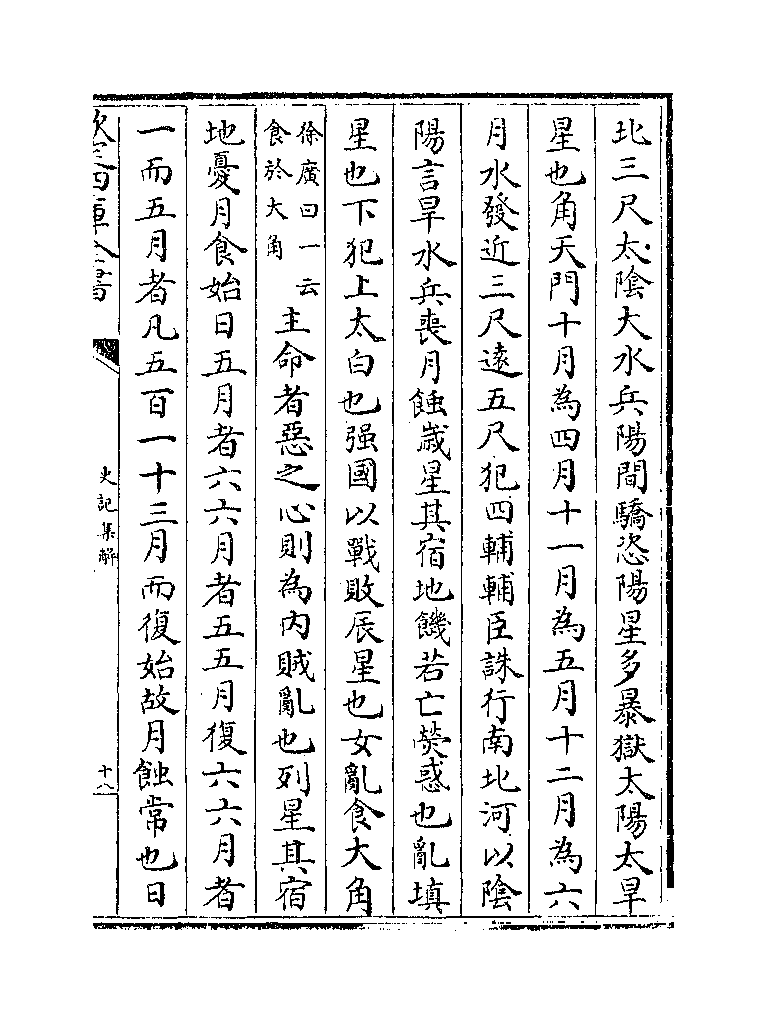 北三尺太陰大水兵陽間驕恣陽星多暴獄太陽太旱
星也角天門十月為四月十一月為五月十二月為六
月水發近三尺遠五尺犯四輔輔臣誅行南北河以陰
陽言旱水兵喪月蝕嵗星其宿地饑若亡熒惑也亂填
星也下犯上太白也强國以戰敗辰星也女亂食大角
徐廣曰一云
食於大角
主命者惡之心則為内賊亂也列星其宿
地憂月食始日五月者六六月者五五月復六六月者
一而五月者凡五百一十三月而復始故月蝕常也日
欽定四庫全書
史記集解
十八